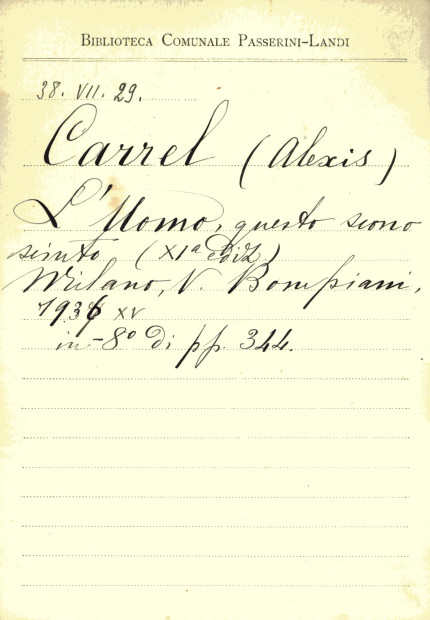 BIBLIOTECA COMUNALE PASSERINI-LANDI
38. VII. 29.
Carrel (Alexis)
L'Uomo, questo scono
sciuto (XIª ediz)
Milano, V. Bompiani,
1936 XV
in-8º di pp. 344.